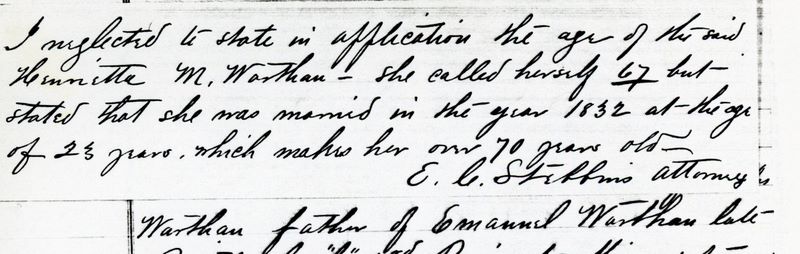 I neglected to state in application the age of the said
Henrietta M. Worthan – she called herself 67 but
stated that she was married in the year 1832 at the age
of 23 years. which makes her over 70 years old –
E. C. Stebbins Attorney
Worthan father of Emanuel Worthan late